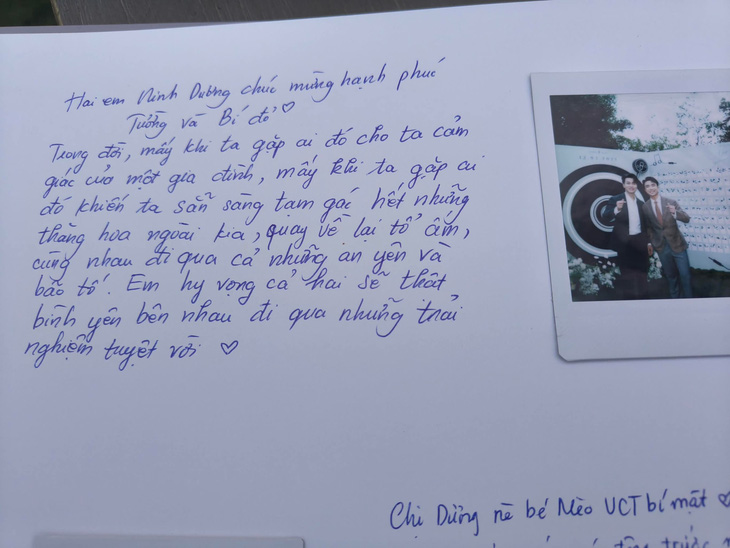 Hai em Ninh Dương chúc mừng hạnh phúc
Tưởng và Bí đỏ ♡
Trong đời, mấy khi ta gặp ai đó cho ta cảm
giác của một gia đình, mấy khi ta gặp ai
đó khiến ta sẵn sàng tạm gác hết những
thăng hoa ngoài kia, quay về lại tổ ấm,
cùng nhau đi qua cả những an yên và
bão tố. Em hy vọng cả hai sẽ thật
bình yên bên nhau đi qua những trải
nghiệm tuyệt vời ♡
Chị Dương nè bé Mèo UCT bí mật ♡